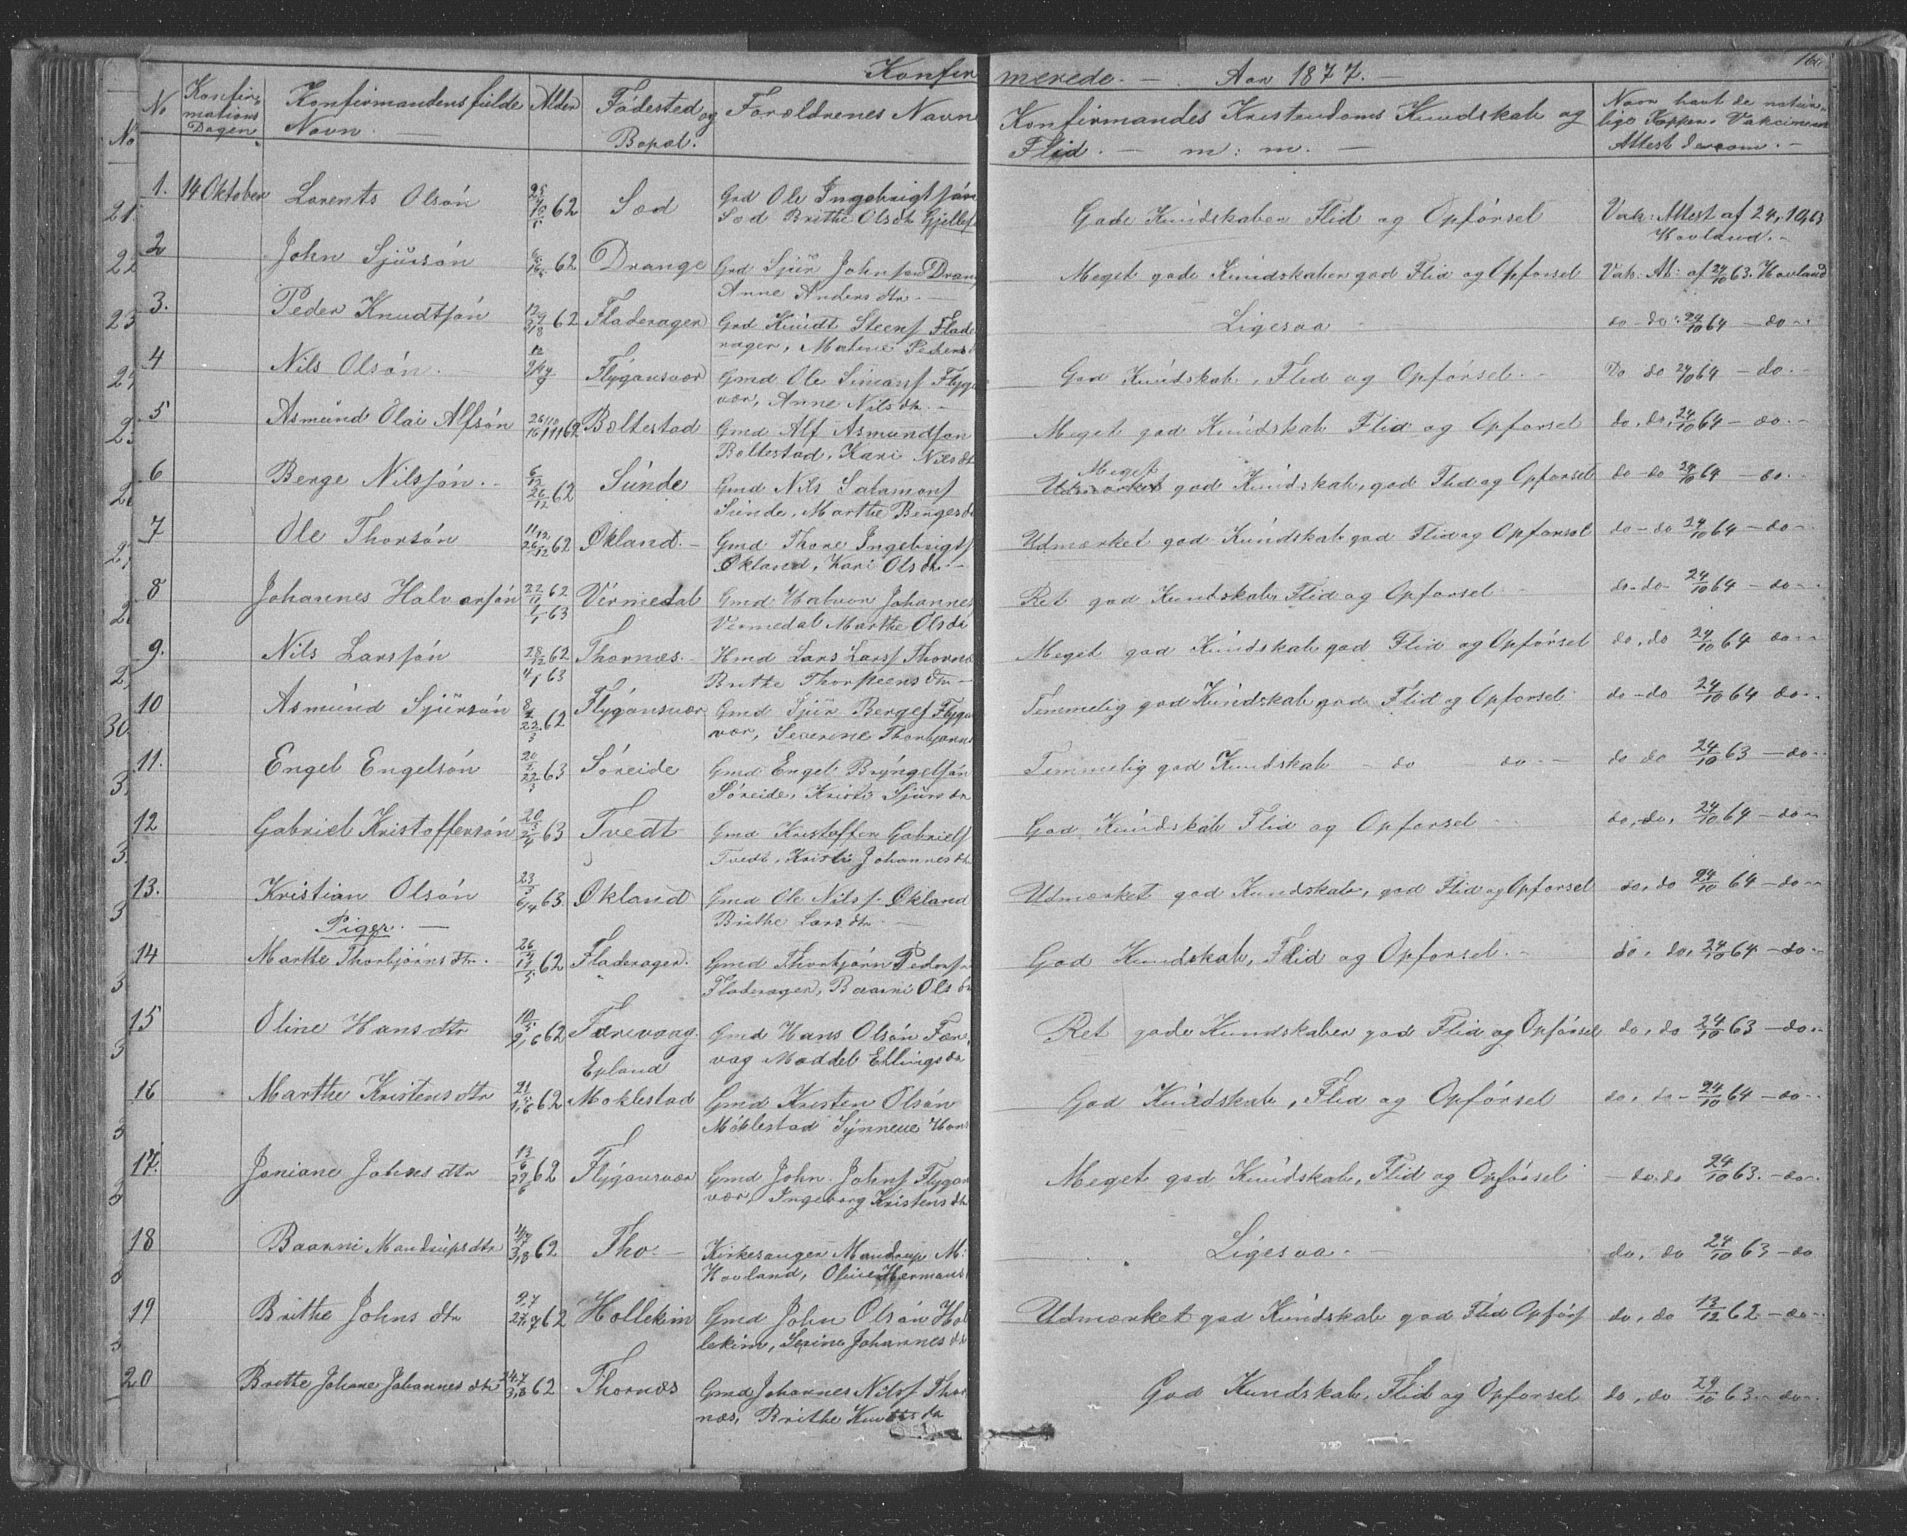 Konfirmerede. - Aar 1877. -
No Konfirmations Dagen Konfirmandens fulde Navn. Alder Fødested og Bopæl. Forældrenes Navn Konfirmandes Kristendoms Kundskab og Flid. - m: m. - Naar havt de naturlige Kopper. Vakcinerede Attest derom. -
1. 14 Oktober Lorents Olsøn 62 Sød Grd Ole Ingebrigtsøn
Sød Brithe Olsdtr Gode Kundskaber Flid og Opførsel Vak: Attest af 24,10,63
Hovland. -
2 John Sjursøn 62 Drange Grd Sjur Johnsøn Drange
Anne Andersdtr - Meget gode Kundskaber god Flid og Opførsel Vak. At: af 24/10 63. Hovland
3. Peder Knudtsøn 62 Fladerager Grd Knudt Steens Flade
rager, Malene Peders Ligesaa do - do 24/10 64 - do -
4 Nils Olsøn. Flygansvær Gmd Ole Simons Flygans
vær, Anne Nilsdtr. - God Kundskab, Flid og Opførsel. - Do do 24/10 64 - do. -
5 Asmund Olai Alfsøn 62 Boltestad Gmd Alf Asmundsøn
Boltestad, Kari Nilsdtr Meget god Kundskab Flid og Opførsel do, do, 24/10 64 - do. -
6 Berge Nilssøn. - 6/12 26/12 62 Sunde Gmd Nils Salamons
Sunde, Marthe Bergesdtr Meget
Udmærket god Kundskab, god Flid og Opførsel do - do 24/10 64 - do. -
7 Ole Thorsøn 62 Økland. - Gmd Thore Ingebrigts
Økland, Kari Olsdtr - Udmærket god Kundskab god Flid og Opførsel do - do 24/10 64 - do -
8 Johannes Halvorsøn 62 1/1 63 Virmedal Gmd Halvor Johannes
Vermedal Marthe Olsdtr Ret god Kundskab Flid og Opførsel do - do 24/10 64 - do -
9. Nils Larssøn 28/12 62 4/1 63 Thornæs. - Hmd Lars Larss Thornæs
Brithe dtr - Meget god Kundskab god Flid og Opførsel do, do 24/10 64 do -
10 Asmund Sjursøn 62 Flygansvær Gmd Sjur Berges Flygans
vær, Severine Thorbjørns Temmelig god Kundskab god Flid og Opførsel do - do 24/10 64 do -
11. Engel Engelsøn 63 Søreide Gmd Engel Bryngelsøn
Søreide, Kristi Sjursdtr Temmelig god Kundskab - do do - do do 24/10 63 - do -
12 Gabriel Kristoffersøn 63 Tvedt Gmd Kristoffer Gabriels
Tvedt, Kristi Johannesdtr God Kundskab Flid og Opførsel do, do, 24/10 64 - do -
13. Kristian Olsøn 23/3 6/4 63 Økland Gmd Ole Nilss. Økland
Brithe Larsdtr - Udmærket god Kundskab, god Flid og Opførsel do, do 24/10 64 - do -
Piger. -
14 Marthe Thorbjørnsdtr. 62 Fladerager. Gmd Thorbjørn Peders
Fladerager, Baarni Olsdtr God Kundskab, Flid og Opførsel. - do, do, 24/10 64 - do -
15 Oline Hansdtr 62 Færevaag. Gmd Hans Olsøn Fære
Epland vag Maddel Ellingsdtr Ret gode Kundskaber god Flid og Opførsel do, do 24/10 63 - do -
16 Marthe Kristensdtr 62 Møklestad Gmd Kristen Olsøn
Møklestad Synneve Hans God Kundskab, Flid og Opførsel do, do - 24/10 64 - do -
17. Joniane Johnsdtr 13/6 29/6 62 Flygansvær Gmd John Johns Flygans
vær, Ingeborg Kristensdtr Meget god Kundskab, Flid og Opførsel - do, do 24/10 63. - do -
18 Baarni Mandrupsdtr 62 Tho - Kirkesanger Mandrup M.
Hovland, Oline Hermans Ligesaa. - do, do 24/10 63 - do
19 Brithe Johnsdtr 62 Hollekim Gmd John Olsøn Hol
lekim, Serine Johannesdtr Udmærket god Kundskab god Flid Opførs do, do 13/12 62 - do -
20 Brithe Johane Johannesdtr 62 Thornæs Gmd Johannes Nilss Thor
næs, Brithe Knudtsdtr God Kundskab, Flid og Opførsel do, do 24/10 63. - do -